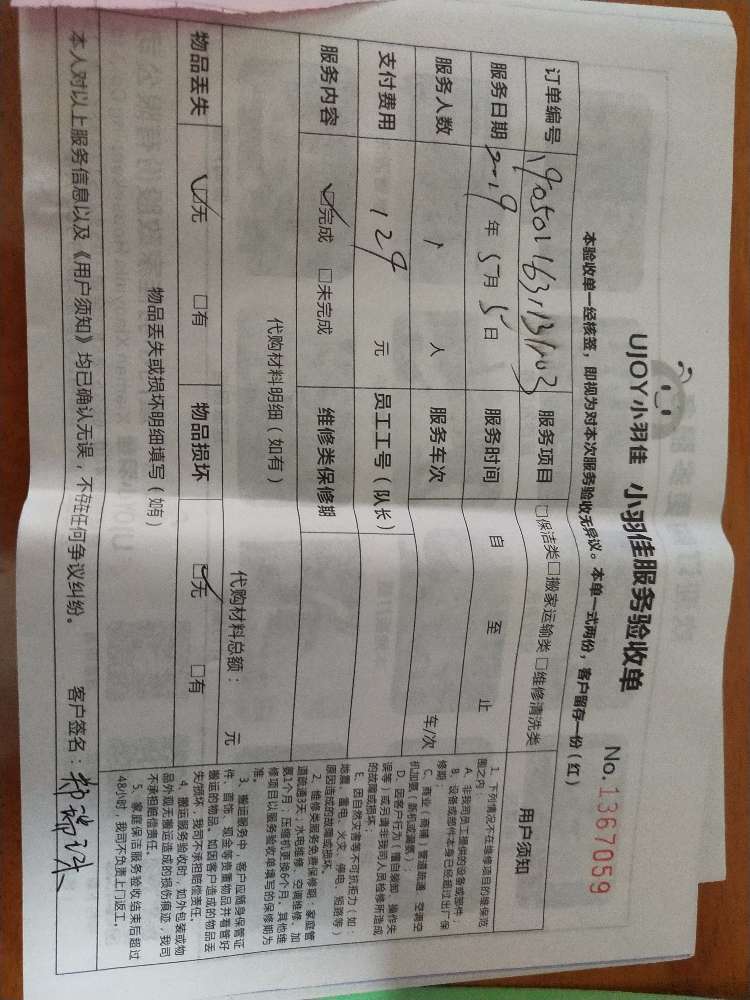 UJOY小羽佳 小羽佳服务验收单
No.1367059
本验收单一经核签，即视为对本次服务验收无异议。本单一式两份，客户留存一份（红）
订单编号 服务项目 □保洁类□搬家运输类□维修清洗类
服务日期 2019年5月5日 服务时间 自 至 止
服务人数 1 人 服务车次 车/次
支付费用 129 元 员工工号（队长）
服务内容 ☑完成 □未完成 维修类保修期
代购材料明细（如有）
代购材料总额： 元
物品丢失 ☑无 □有 物品损坏 ☑无 □有
物品丢失或损坏明细填写（如有）
本人对以上服务信息以及《用户须知》均已确认无误，不存在任何争议纠纷。 客户签名：
用户须知
1、下列情况不在维修项目的维保范
围之内：
A、非我司员工提供的设备或部件；
B、设备或部件本身已经超过出厂保
修期；
C、商业（商铺）管道疏通，空调空
机加氨（新机或漏氨）；
D、因客户行为（擅自装卸、操作失
误等）或另请非我司人员检修所造成
的故障或损坏；
E、因自然灾害等不可抗拒力（如：
地震、雷电、火灾、停电、短路等）
原因造成的故障或损坏。
2、维修类服务免费保修期：家庭管
道疏通3天；水电维修、空调维修、加
氨1个月；压缩机更换6个月。其他维
修项目以服务验收单填写的保修期为
准。
3、搬运服务中，客户应随身保管证
件、首饰、现金等贵重物品并看管好
搬运的物品。如因客户造成的物品丢
失/损坏，我司不承担赔偿责任。
4、搬运服务验收时，如外包装或物
品外观无搬运造成的损伤痕迹，我司
不承担赔偿责任。
5、家庭保洁服务验收结束后超过
48小时，我司不负责上门返工。